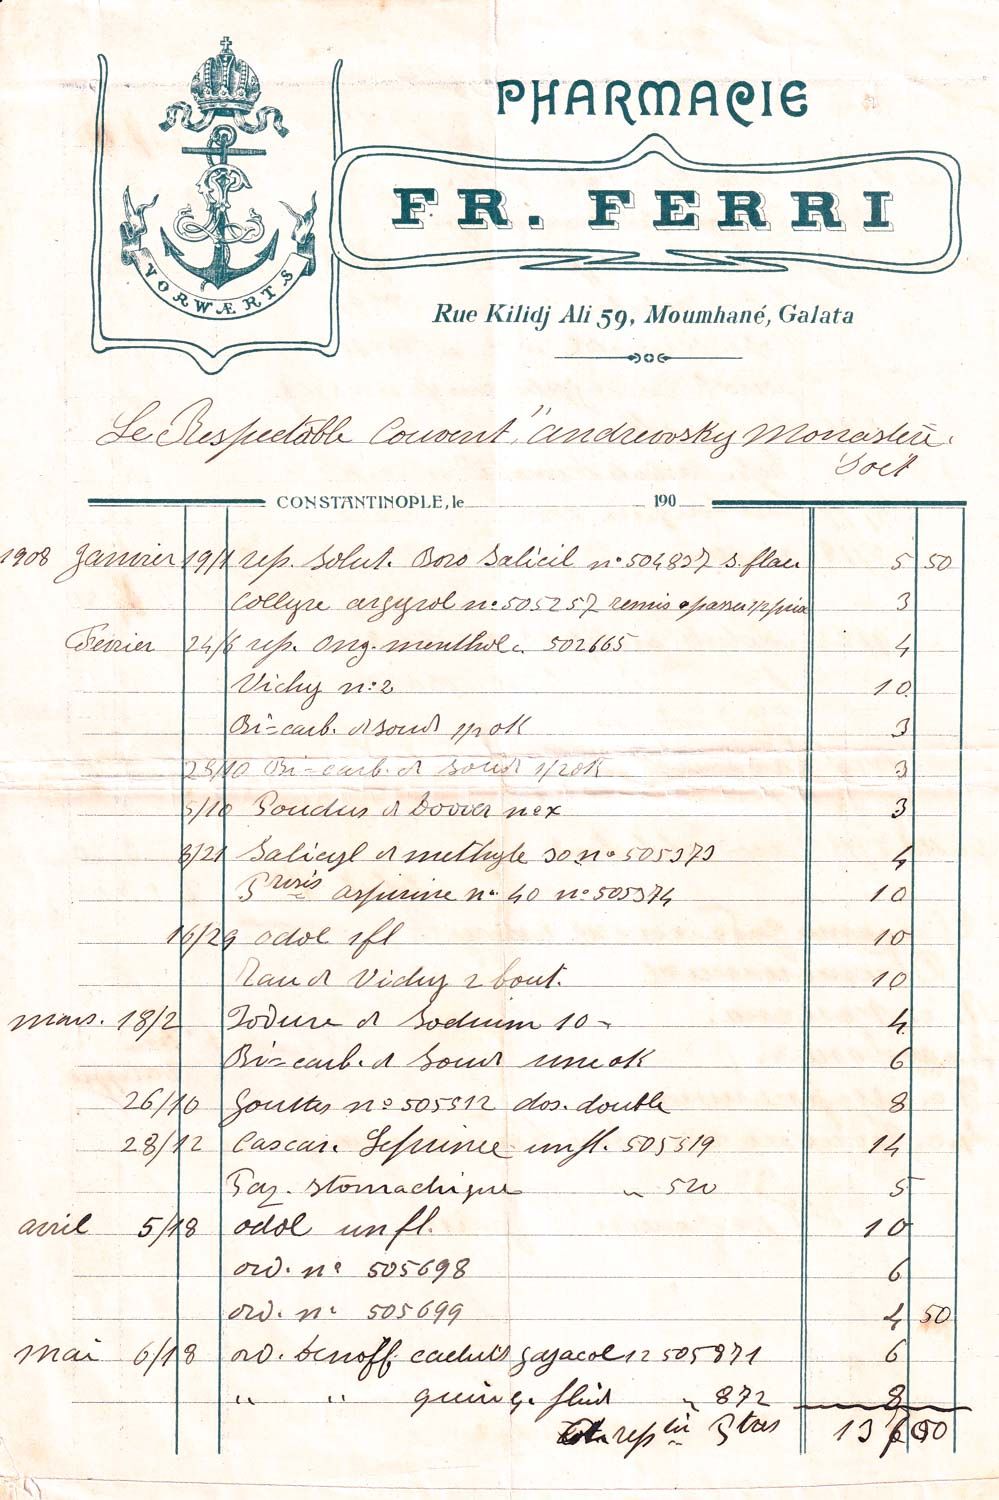 VORWÆRTS
PHARMACIE
FR. FERRI
Rue Kilidj Ali 59, Moumhané, Galata
Le Respectable Couvent "Andrewsky Monastère
Doit
CONSTANTINOPLE, le 190
1908 Janvier 19/1 rep. Solut. Boro Salicil n° 504837 s. flac 5 50
Collyre argyrol n° 505257 remis 3
Février 24/6 rep. Ong. menthol c. 502665 4
Vichy n° 2 10
Bi-carb. d Soud 1/2 ok 3
28/10 Bi-carb. d Soud 1/2 ok 3
5/10 Poudres d Dover n° x 3
8/21 Salicyl d methyle 30 n° 505373 4
aspirine n° 40 n° 505374 10
16/29 Odol 1 fl 10
Eau d Vichy 2 bout. 10
Mars. 18/2 Iodure d Sodium 10 4
Bi-carb. d Soud une ok 6
26/10 Gouttes n° 505512 dos. double 8
28/12 Cascar. Leprince un fl. 505519 14
stomachique " 520 5
avril 5/18 Odol un fl. 10
ord. n° 505698 6
ord. n° 505699 4 50
Mai 6/18 ord. cachets gajacol 12 505871 6
" " fluid " 872 8
136 50